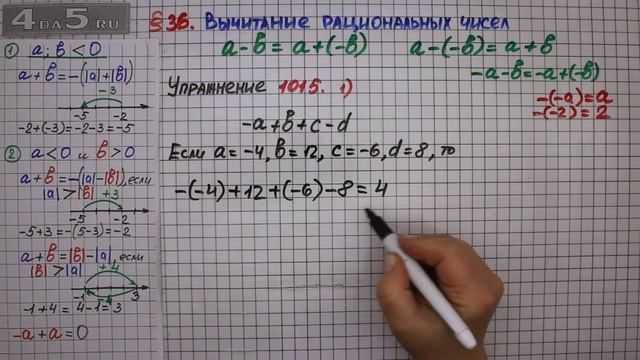 4DA5.RU
§ 36. Вычитание рациональных чисел
a-b = a+(-b)
a-(-b) = a+b
-a-b=-a+(-b)
-(-a)=a
-(-2)=2
Упражнение 1015. 1)
-a+b+c-d
Если a=-4, b=12, c=-6, d=8, то
-(-4)+12+(-6)-8=4
1) a; b < 0
a+b=-(|a|+|b|)
-3
-5 -2
-2+(-3)=-2-3=-5
2) a<0 и b>0
a+b=-(|a|-|b|), если
|a|>|b| +3
-5 -2
-5+3=-(5-3)=-2
a+b=|b|-|a|, если
|b|>|a| +4
-1 3
-1+4=4-1=3
-a+a=0